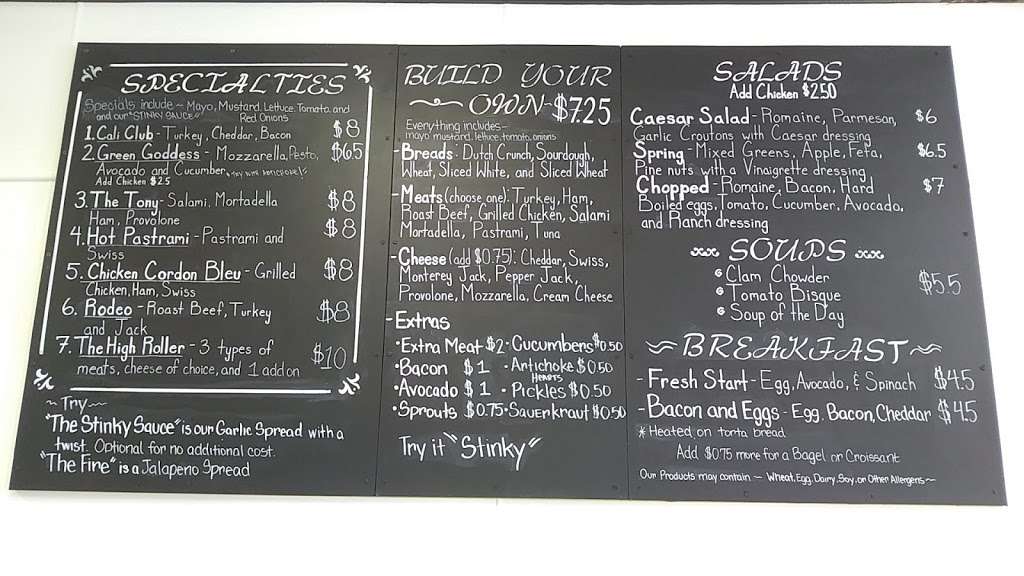 SPECIALTIES
Specials include ~ Mayo, Mustard, Lettuce, Tomato, and
and our "STINKY SAUCE" Red Onions
1. Cali Club - Turkey, Cheddar, Bacon $8
2. Green Goddess - Mozzarella, Pesto, $6.5
Avocado and Cucumber
Add Chicken $2.5
3. The Tony - Salami, Mortadella $8
Ham, Provolone
4. Hot Pastrami - Pastrami and $8
Swiss
5. Chicken Cordon Bleu - Grilled $8
Chicken, Ham, Swiss
6. Rodeo - Roast Beef, Turkey $8
and Jack
7. The High Roller - 3 types of $10
meats, cheese of choice, and 1 add on
~ Try ~
"The Stinky Sauce" is our Garlic Spread with a
twist. Optional for no additional cost.
"The Fire" is a Jalapeno Spread
BUILD YOUR
OWN - $7.25
Everything includes ~
mayo, mustard, lettuce, tomato, onions
- Breads: Dutch Crunch, Sourdough,
Wheat, Sliced White, and Sliced Wheat
- Meats (choose one): Turkey, Ham,
Roast Beef, Grilled Chicken, Salami
Mortadella, Pastrami, Tuna
- Cheese (add $0.75): Cheddar, Swiss,
Monterey Jack, Pepper Jack,
Provolone, Mozzarella, Cream Cheese
- Extras
• Extra Meat $2 • Cucumbers $0.50
• Bacon $1 • Artichoke Hearts $0.50
• Avocado $1 • Pickles $0.50
• Sprouts $0.75 • Sauerkraut $0.50
Try it "Stinky"
SALADS
Add Chicken $2.50
Caesar Salad - Romaine, Parmesan, $6
Garlic Croutons with Caesar dressing
Spring - Mixed Greens, Apple, Feta, $6.5
Pine nuts with a Vinaigrette dressing
Chopped - Romaine, Bacon, Hard $7
Boiled eggs, Tomato, Cucumber, Avocado,
and Ranch dressing
SOUPS
Clam Chowder
Tomato Bisque $5.5
Soup of the Day
BREAKFAST
- Fresh Start - Egg, Avocado, & Spinach $4.5
- Bacon and Eggs - Egg, Bacon, Cheddar $4.5
* Heated on torta bread
Add $0.75 more for a Bagel or Croissant
Our Products may contain ~ Wheat, Egg, Dairy, Soy, or Other Allergens ~